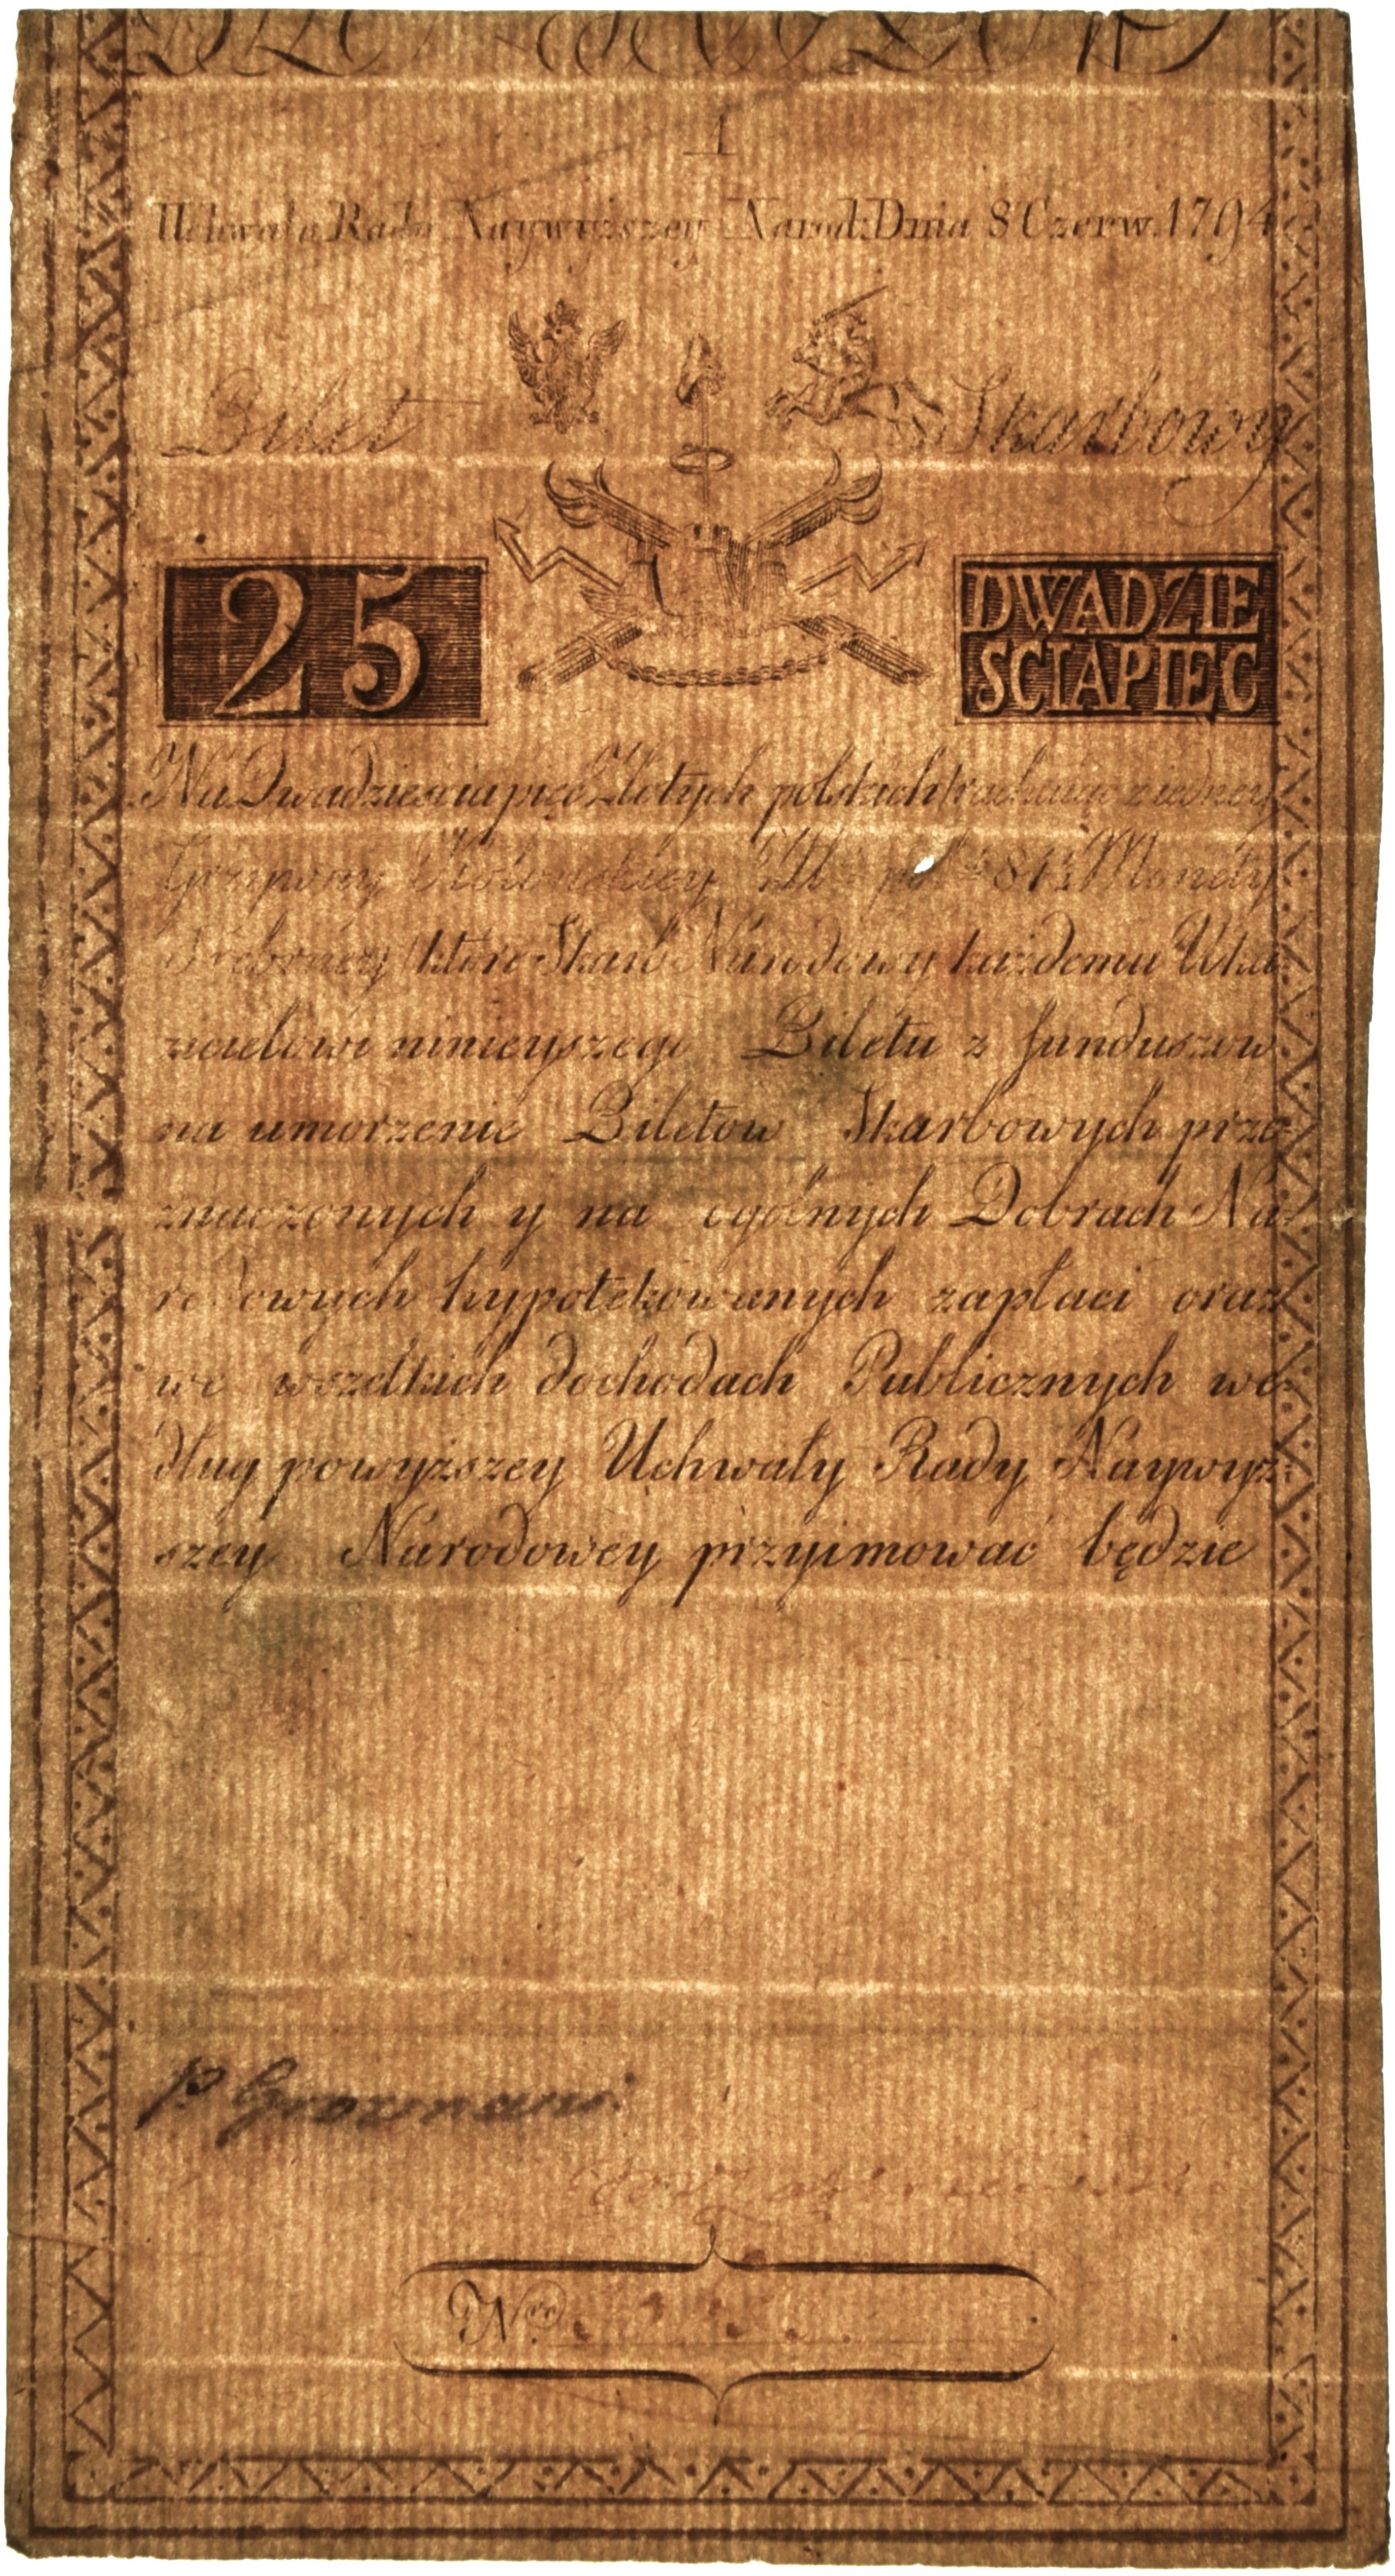 1
Uchwała Rady Naywyższey Narod: Dnia 8 Czerw. 1794
Bilet Skarbowy
25 DWADZIE
SCIAPIĘC
Na Dwadziesciapięć Złotych polskich rachuiąc z iedney
Grzywny Kolońskiey 84½ Monety
Srebrney ktore Skarb Narodowy każdemu Uka
zicielowi ninieyszego Biletu z funduszow
na umorzenie Biletow Skarbowych prze=
znaczonych y na ogolnych Dobrach Na=
rodowych hypotekowanych zapłaci oraz
we wszelkich dochodach Publicznych we=
dług powyższey Uchwały Rady Naywyż=
szey Narodowey przyimować będzie
Nro